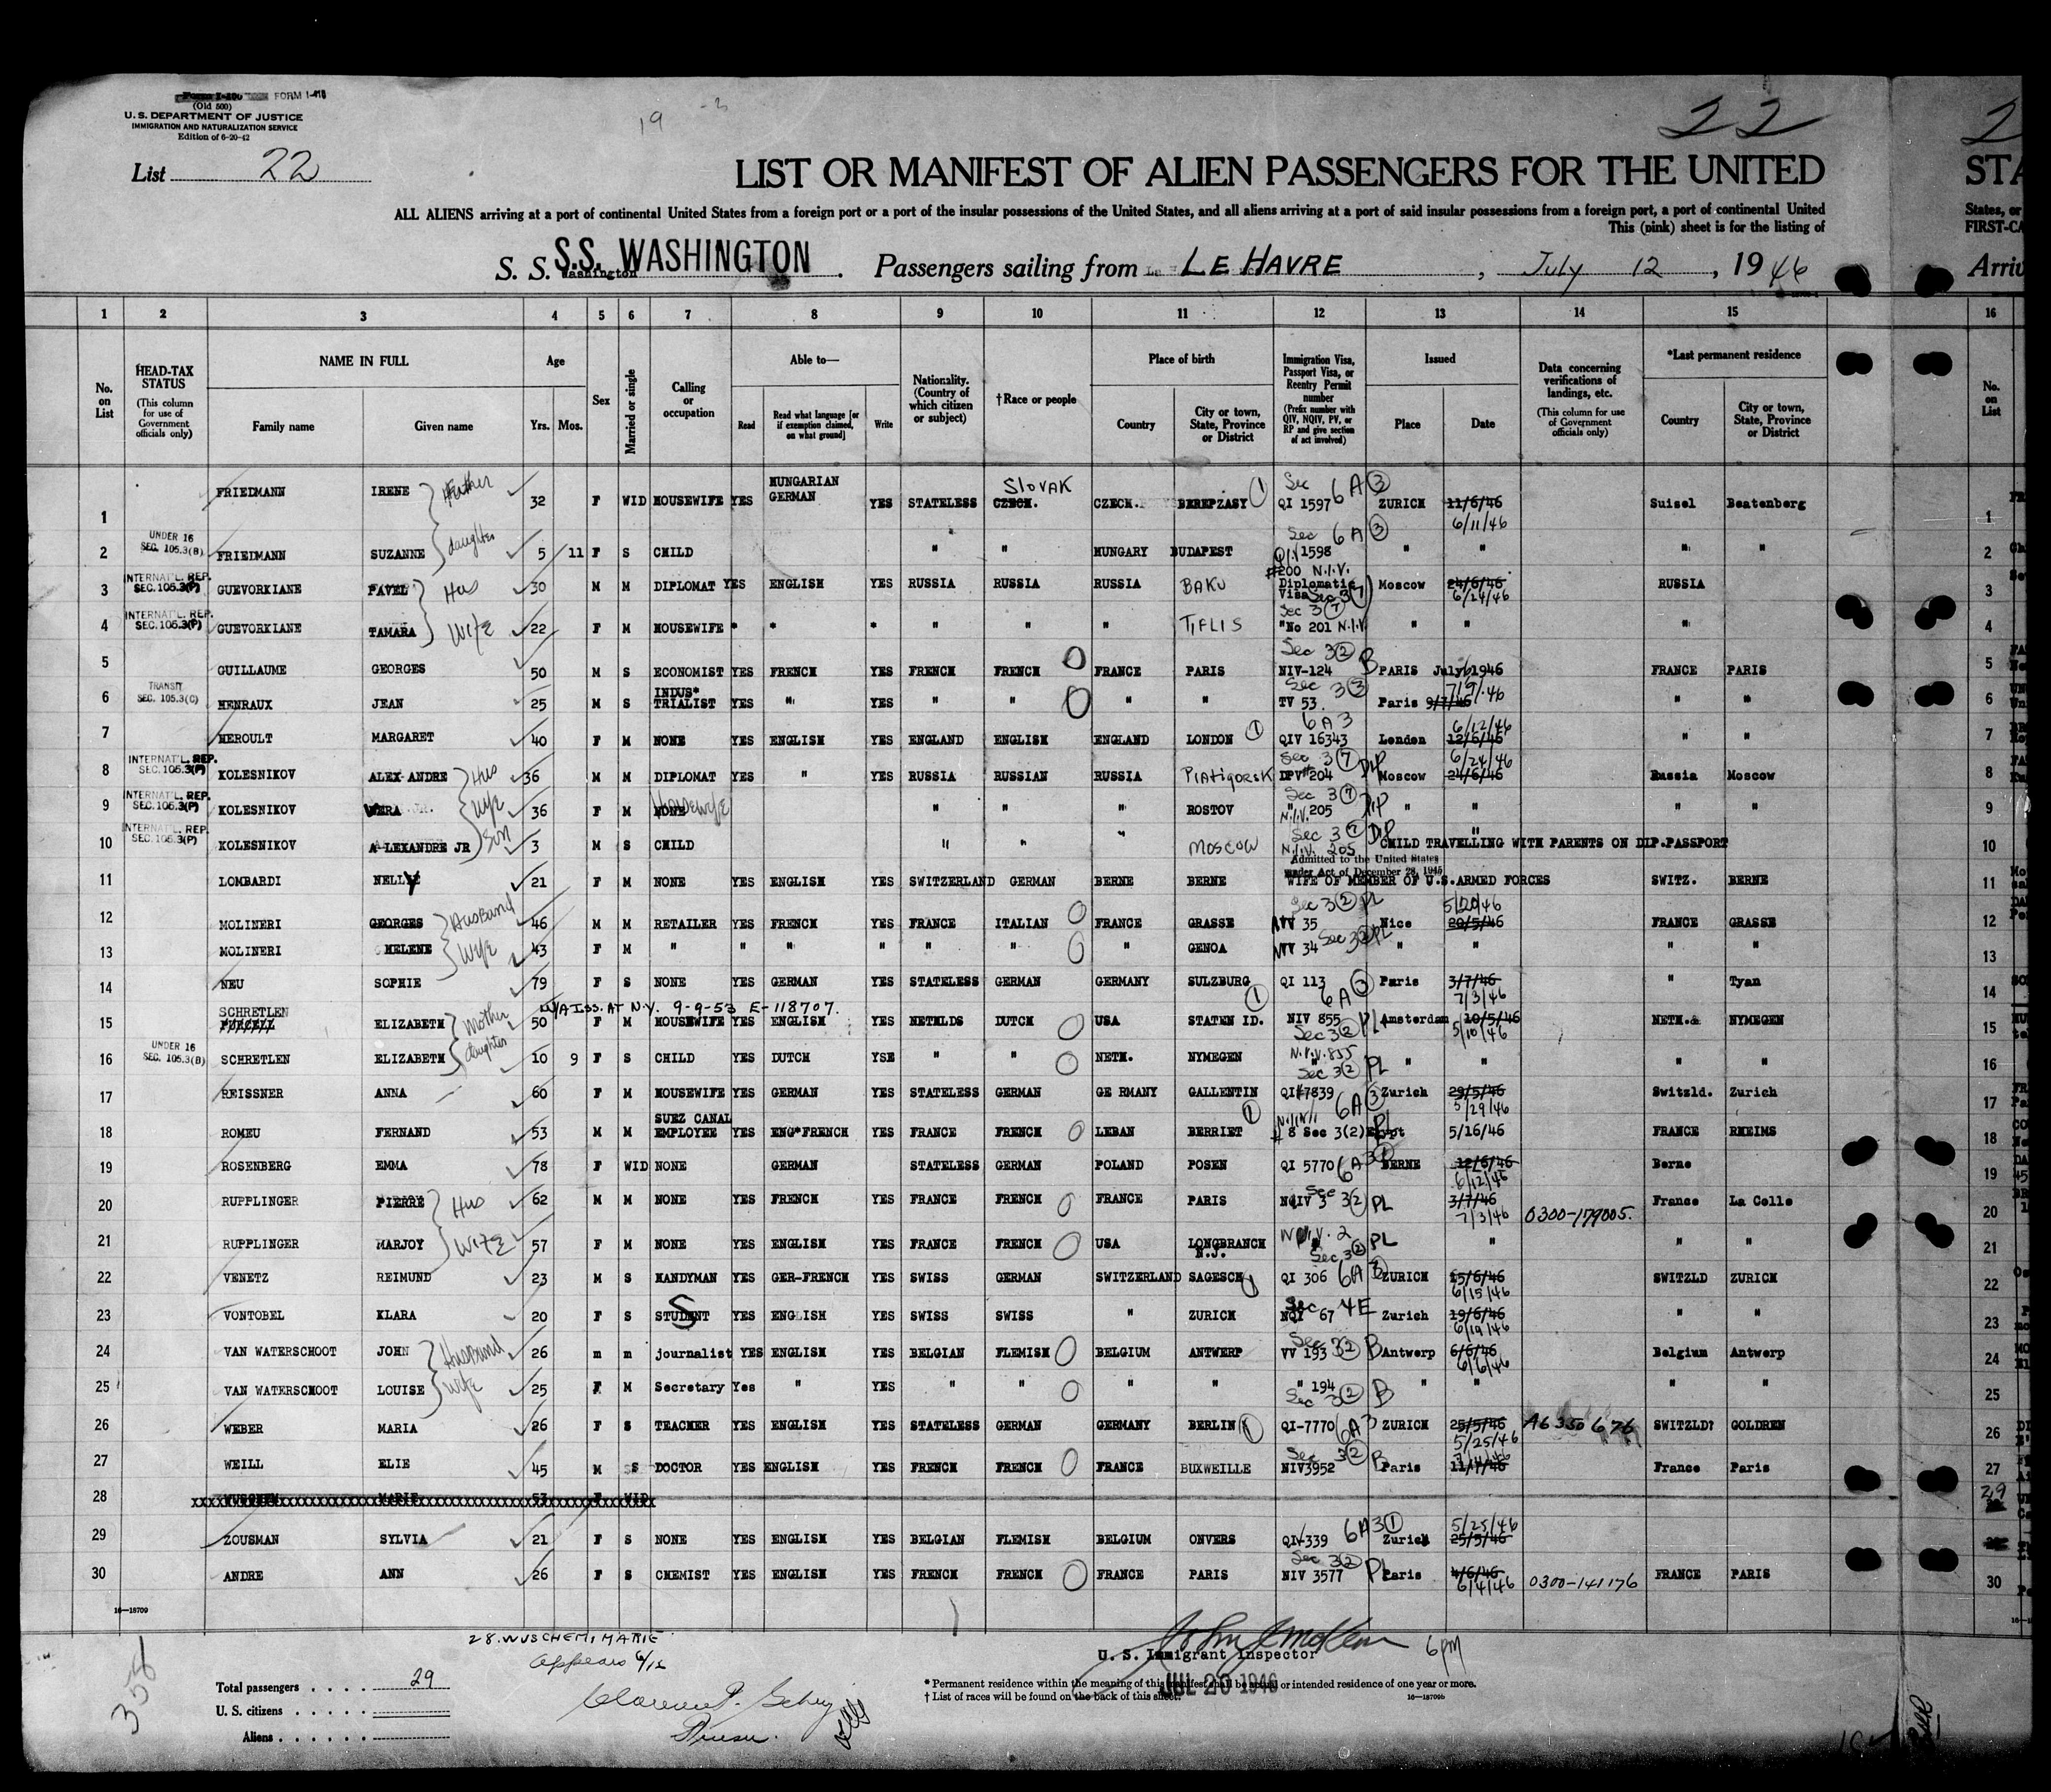 FORM I-418
(Old 500)
U.S. DEPARTMENT OF JUSTICE
IMMIGRATION AND NATURALIZATION SERVICE
Edition of 6-20-42
19 -3
22
List 22
LIST OR MANIFEST OF ALIEN PASSENGERS FOR THE UNITED STA
ALL ALIENS arriving at a port of continental United States from a foreign port or a port of the insular possessions of the United States, and all aliens arriving at a port of said insular possessions from a foreign port, a port of continental United States, or
This (pink) sheet is for the listing of FIRST-CA
S. S. S.S. WASHINGTON Washington. Passengers sailing from LE HAVRE, July 12, 1946 Arriv
1 2 3 4 5 6 7 8 9 10 11 12 13 14 15 16
No. on List
HEAD-TAX STATUS (This column for use of Government officials only)
NAME IN FULL Family name Given name
Age Yrs. Mos.
Sex
Married or single
Calling or occupation
Able to— Read Read what language [or if exemption claimed, on what ground] Write
Nationality. (Country of which citizen or subject)
†Race or people
Place of birth Country City or town, State, Province or District
Immigration Visa, Passport Visa, or Reentry Permit number (Prefix number with QIV, NQIV, PV, or RP and give section of act involved)
Issued Place Date
Data concerning verifications of landings, etc. (This column for use of Government officials only)
*Last permanent residence Country City or town, State, Province or District
No. on List
1 FRIEDMANN IRENE 32 F WID HOUSEWIFE YES HUNGARIAN GERMAN YES STATELESS SLOVAK CZECH. CZECH. BEREPZASY ① Sec 6A③ QI 1597 ZURICH 11/6/46 6/11/46 Suisel Beatenberg 1
2 UNDER 16 SEC. 105.3(B) FRIEDMANN SUZANNE daughter 5 11 F S CHILD " " HUNGARY BUDAPEST Sec 6A③ QIV 1598 " " " " 2
3 INTERNAT'L. REP. SEC. 105.3(P) GUEVORKIANE PAVEL Hus 30 M M DIPLOMAT YES ENGLISH YES RUSSIA RUSSIA RUSSIA BAKU #200 N.I.V. Diplomatic Visa Sec 3(7) Moscow 24/6/46 6/24/46 RUSSIA 3
4 INTERNAT'L. REP. SEC. 105.3(P) GUEVORKIANE TAMARA Wife 22 F M HOUSEWIFE " " " " " " TIFLIS Sec 3(7) "No 201 N.I.V. " " " 4
5 GUILLAUME GEORGES 50 M S ECONOMIST YES FRENCH YES FRENCH FRENCH FRANCE PARIS Sec 3② B NIV-124 PARIS July 6 1946 FRANCE PARIS 5
6 TRANSIT SEC. 105.3(C) HENRAUX JEAN 25 M S INDUS* TRIALIST YES " YES " " " " Sec 3③ TV 53. Paris 9/7/46 7/9/46 " " 6
7 HEROULT MARGARET 40 F M NONE YES ENGLISH YES ENGLAND ENGLISH ENGLAND LONDON ① 6A3 QIV 16343 London 12/6/46 6/12/46 " " 7
8 INTERNAT'L. REP. SEC. 105.3(P) KOLESNIKOV ALEX ANDRE Hus 36 M M DIPLOMAT YES " YES RUSSIA RUSSIAN RUSSIA Piatigorsk Sec 3⑦ DIP DPV#204 Moscow 24/6/46 6/24/46 Russia Moscow 8
9 INTERNAT'L. REP. SEC. 105.3(P) KOLESNIKOV VERA Wife 36 F M NONE Housewife " " " ROSTOV Sec 3⑦ DIP N.I.V. 205 " " " " 9
10 INTERNAT'L. REP. SEC. 105.3(P) KOLESNIKOV ALEXANDRE JR Son 3 M S CHILD " " " MOSCOW Sec 3⑦ DIP N.I.V. 205 " CHILD TRAVELLING WITH PARENTS ON DIP.PASSPORT 10
Admitted to the United States under Act of December 28, 1945
11 LOMBARDI NELLY 21 F M NONE YES ENGLISH YES SWITZERLAND GERMAN BERNE BERNE WIFE OF MEMBER OF U.S.ARMED FORCES SWITZ. BERNE 11
12 MOLINERI GEORGES Husband 46 M M RETAILER YES FRENCH YES FRANCE ITALIAN FRANCE GRASSE Sec 3② PL 35 Nice 20/5/46 5/20/46 FRANCE GRASSE 12
13 MOLINERI HELENE Wife 43 F M " " " " " " " GENOA Sec 3② PL 34 " " " " 13
14 NEU SOPHIE 79 F S NONE YES GERMAN YES STATELESS GERMAN GERMANY SULZBURG ① QI 113 6A③ Paris 3/7/46 7/3/46 " Tyan 14
W/A ISS. AT N.Y. 9-9-53 E-118707.
15 SCHRETLEN PURCELL ELIZABETH Mother 50 F M HOUSEWIFE YES ENGLISH YES NETHLDS DUTCH USA STATEN ID. NIV 855 Sec 3② PL Amsterdam 10/5/46 5/10/46 NETH. NYMEGEN 15
16 UNDER 16 SEC. 105.3(B) SCHRETLEN ELIZABETH daughter 10 9 F S CHILD YES DUTCH YSE " " NETH. NYMEGEN N.I.V. 855 Sec 3② PL " " " " 16
17 REISSNER ANNA 60 F M HOUSEWIFE YES GERMAN YES STATELESS GERMAN GE RMANY GALLENTIN ① QI#7839 6A③ Zurich 29/5/46 5/29/46 Switzld. Zurich 17
18 ROMEU FERNAND 53 M M SUEZ CANAL EMPLOYEE YES ENG*FRENCH YES FRANCE FRENCH LEBAN BERRIET # 8 Sec 3(2) PL 5/16/46 FRANCE RHEIMS 18
19 ROSENBERG EMMA 78 F WID NONE GERMAN STATELESS GERMAN POLAND POSEN QI 5770 6A3 BERNE 12/6/46 6/12/46 Berne 19
20 RUPPLINGER PIERRE Hus 62 M M NONE YES FRENCH YES FRANCE FRENCH FRANCE PARIS NQIV 3 Sec 3② PL 3/7/46 7/3/46 0300-179005. France La Colle 20
21 RUPPLINGER MARJOY Wife 57 F M NONE YES ENGLISH YES FRANCE FRENCH USA LONGBRANCH N.J. 2 Sec 3② PL " " " 21
22 VENETZ REIMUND 23 M S HANDYMAN YES GER-FRENCH YES SWISS GERMAN SWITZERLAND SAGESCH QI 306 6A3 ZURICH 15/6/46 6/15/46 SWITZLD ZURICH 22
23 VONTOBEL KLARA 20 F S STUDENT S YES ENGLISH YES SWISS SWISS " ZURICH Sec 4E NQI 67 Zurich 19/6/46 6/19/46 " " 23
24 VAN WATERSCHOOT JOHN Husband 26 m m journalist YES ENGLISH YES BELGIAN FLEMISH BELGIUM ANTWERP Sec 3② B VV 193 Antwerp 6/6/46 6/6/46 Belgium Antwerp 24
25 VAN WATERSCHOOT LOUISE Wife 25 F M Secretary Yes " YES " " " " " 194 Sec 3② B " " " " 25
26 WEBER MARIA 26 F S TEACHER YES ENGLISH YES STATELESS GERMAN GERMANY BERLIN QI-7770 6A3 ZURICH 25/5/46 5/25/46 A6 350 676 SWITZLD? GOLDREN 26
27 WEILL ELIE 45 M S DOCTOR YES ENGLISH YES FRENCH FRENCH FRANCE BUXWEILLE Sec 3② B NIV3952 Paris 11/7/46 France Paris 27
28 WUSCHEM MARIE 53 F WID 29
29 ZOUSMAN SYLVIA 21 F S NONE YES ENGLISH YES BELGIAN FLEMISH BELGIUM ONVERS 6A3① QIV339 Zurich 25/5/46 5/25/46
30 ANDRE ANN 26 F S CHEMIST YES ENGLISH YES FRENCH FRENCH FRANCE PARIS Sec 3② PL NIV 3577 Paris 4/6/46 6/4/46 0300-141176 FRANCE PARIS 30
16—18709
28. WUSCHEM, MARIE
appears 6/12
U. S. Immigrant Inspector 6pm
JUL 20 1946
358
Total passengers . . . . 29
U. S. citizens . . . . .
Aliens . . . . . .
* Permanent residence within the meaning of this manifest shall be actual or intended residence of one year or more.
† List of races will be found on the back of this sheet.
16—18709b